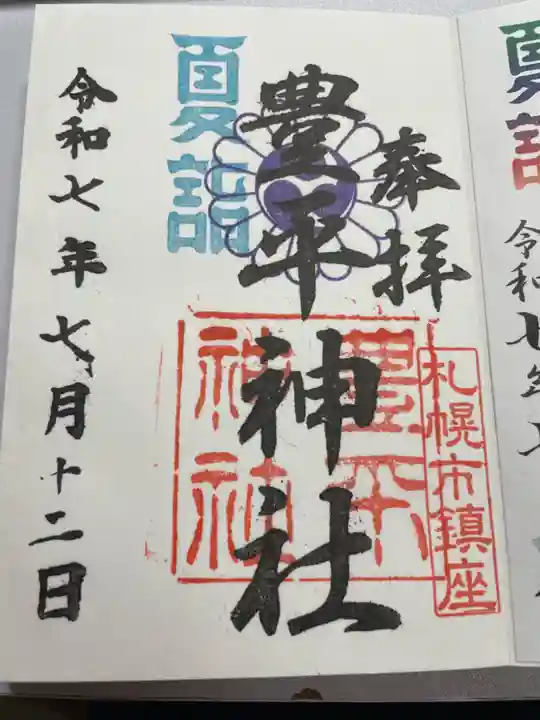 奉拝
豊平神社
札幌市鎮座
豊平
神社
夏詣
令和七年七月十二日
夏詣
令和七年